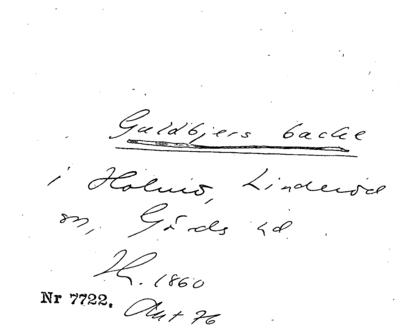 Guldbjers backe
i Holmö, Linderöd
sn, Gärds hd.
Th. 1860
Nr 7722. Akt 76